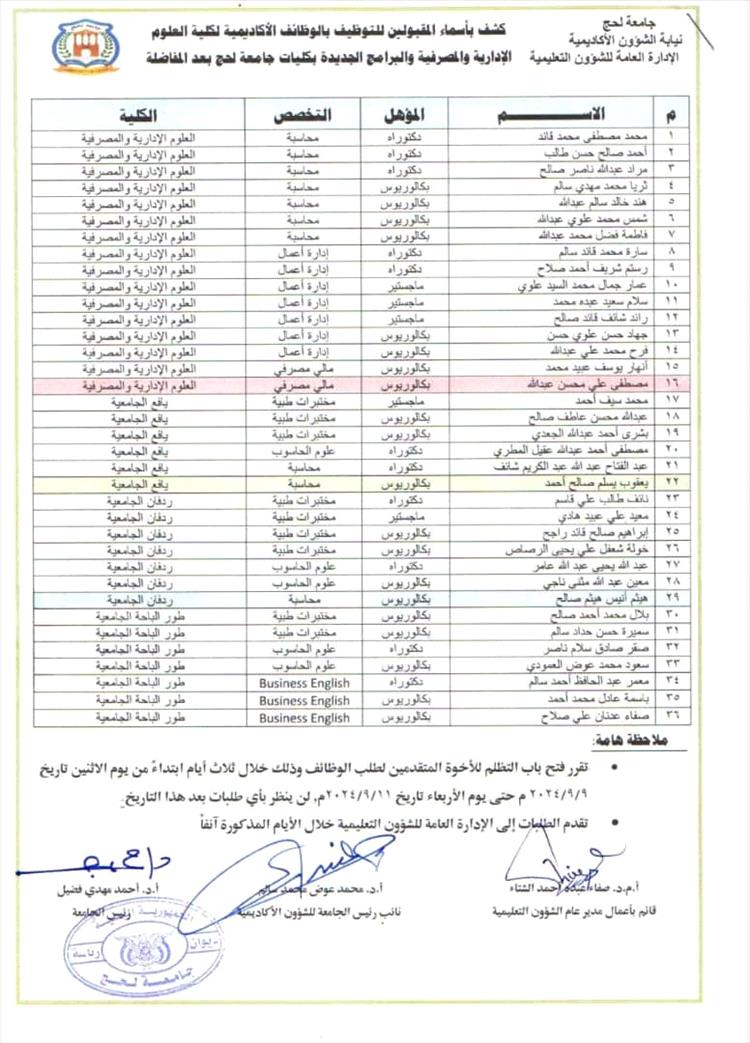 جامعة لحج
نيابة الشؤون الأكاديمية
الإدارة العامة للشؤون التعليمية
كشف بأسماء المقبولين للتوظيف بالوظائف الأكاديمية لكلية العلوم
الإدارية والمصرفية والبرامج الجديدة بكليات جامعة لحج بعد المفاضلة
م الاســــــم المؤهل التخصص الكلية
١ محمد مصطفى محمد قائد دكتوراه محاسبة العلوم الإدارية والمصرفية
٢ أحمد صالح حسن طالب دكتوراه محاسبة العلوم الإدارية والمصرفية
٣ مراد عبدالله ناصر صالح دكتوراه محاسبة العلوم الإدارية والمصرفية
٤ ثريا محمد مهدي سالم بكالوريوس محاسبة العلوم الإدارية والمصرفية
٥ هند خالد سالم عبدالله بكالوريوس محاسبة العلوم الإدارية والمصرفية
٦ شمس محمد علوي عبدالله بكالوريوس محاسبة العلوم الإدارية والمصرفية
٧ فاطمة فضل محمد عبدالله بكالوريوس محاسبة العلوم الإدارية والمصرفية
٨ سارة محمد قائد سالم دكتوراه إدارة أعمال العلوم الإدارية والمصرفية
٩ رستم شريف أحمد صلاح دكتوراه إدارة أعمال العلوم الإدارية والمصرفية
١٠ عمار جمال محمد السيد علوي ماجستير إدارة أعمال العلوم الإدارية والمصرفية
١١ سلام سعيد عبده محمد ماجستير إدارة أعمال العلوم الإدارية والمصرفية
١٢ رائد شائف قائد صالح ماجستير إدارة أعمال العلوم الإدارية والمصرفية
١٣ جهاد حسن علوي حسن بكالوريوس إدارة أعمال العلوم الإدارية والمصرفية
١٤ فرح محمد علي عبدالله بكالوريوس إدارة أعمال العلوم الإدارية والمصرفية
١٥ أنهار يوسف عبيد محمد بكالوريوس مالي مصرفي العلوم الإدارية والمصرفية
١٦ مصطفى علي محسن عبدالله بكالوريوس مالي مصرفي العلوم الإدارية والمصرفية
١٧ محمد سيف أحمد ماجستير مختبرات طبية يافع الجامعية
١٨ عبدالله محسن عاطف صالح بكالوريوس مختبرات طبية يافع الجامعية
١٩ بشرى أحمد عبدالله الجعدي بكالوريوس مختبرات طبية يافع الجامعية
٢٠ مصطفى أحمد عبدالله عقيل المطري دكتوراه علوم الحاسوب يافع الجامعية
٢١ عبد الفتاح عبد الله عبد الكريم شائف دكتوراه محاسبة يافع الجامعية
٢٢ يعقوب يسلم صالح أحمد بكالوريوس محاسبة يافع الجامعية
٢٣ نائف طالب علي قاسم دكتوراه مختبرات طبية ردفان الجامعية
٢٤ معيد علي عبيد هادي ماجستير مختبرات طبية ردفان الجامعية
٢٥ إبراهيم صالح قائد راجح بكالوريوس مختبرات طبية ردفان الجامعية
٢٦ خولة شعفل علي يحيى الرصاص بكالوريوس مختبرات طبية ردفان الجامعية
٢٧ عبد الله يحيى عبد الله عامر دكتوراه علوم الحاسوب ردفان الجامعية
٢٨ معين عبد الله مثنى ناجي بكالوريوس علوم الحاسوب ردفان الجامعية
٢٩ هيثم أنيس هيثم صالح بكالوريوس محاسبة ردفان الجامعية
٣٠ بلال محمد أحمد صالح بكالوريوس مختبرات طبية طور الباحة الجامعية
٣١ سميرة حسن حداد سالم بكالوريوس مختبرات طبية طور الباحة الجامعية
٣٢ صقر صادق سلام ناصر دكتوراه علوم الحاسوب طور الباحة الجامعية
٣٣ سعود محمد عوض العمودي بكالوريوس علوم الحاسوب طور الباحة الجامعية
٣٤ معمر عبد الحافظ أحمد سالم دكتوراه Business English طور الباحة الجامعية
٣٥ باسمة عادل محمد أحمد بكالوريوس Business English طور الباحة الجامعية
٣٦ صفاء عدنان علي صلاح بكالوريوس Business English طور الباحة الجامعية
ملاحظة هامة:
• تقرر فتح باب التظلم للأخوة المتقدمين لطلب الوظائف وذلك خلال ثلاث أيام ابتداءً من يوم الاثنين تاريخ
٢٠٢٤/٩/٩ م حتى يوم الأربعاء تاريخ ٢٠٢٤/٩/١١م, لن ينظر بأي طلبات بعد هذا التاريخ.
• تقدم الطلبات إلى الإدارة العامة للشؤون التعليمية خلال الأيام المذكورة آنفاً
أ.م.د. صفاء عبده أحمد الشتاء أ.د. محمد عوض محمد سالم أ.د. أحمد مهدي فضيل
قائم بأعمال مدير عام الشؤون التعليمية نائب رئيس الجامعة للشؤون الأكاديمية رئيس الجامعة
ديوان رئاسة
جامعة لحج